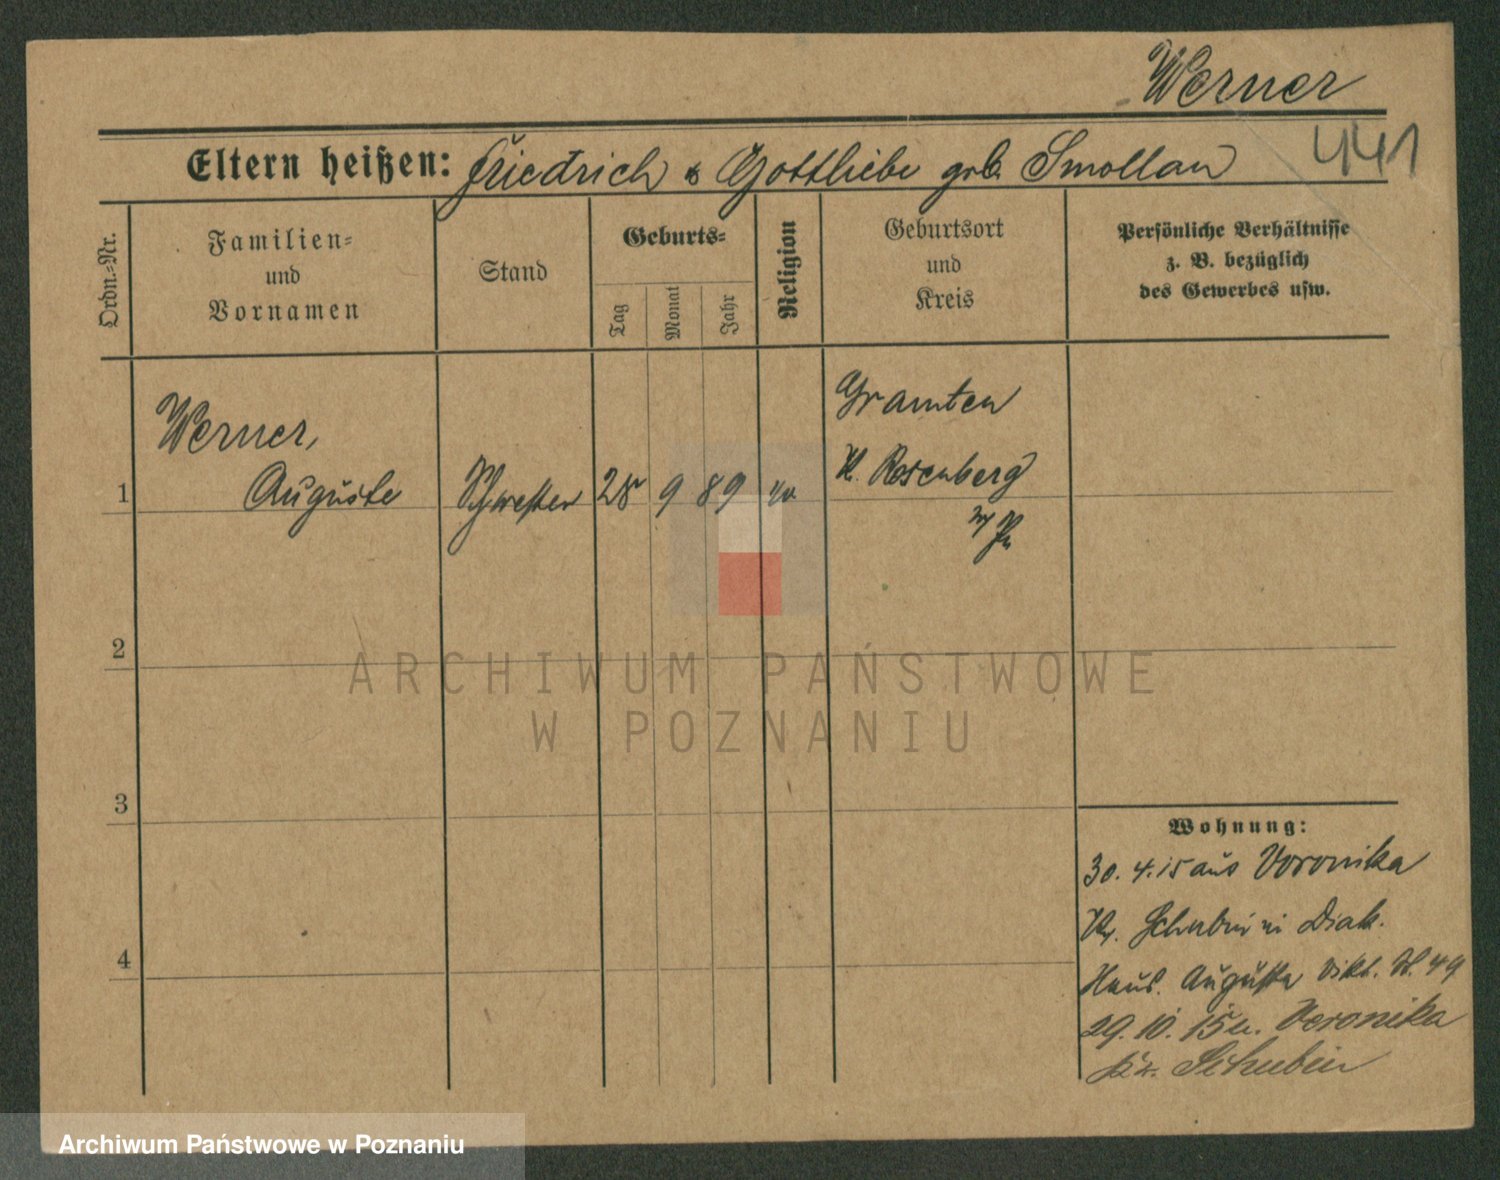 Werner
441
Eltern heißen: Friedrich & Gottliebe geb. Smollau
Ordn.=Nr.
Familien=
und
Vornamen
Stand
Geburts=
Tag
Monat
Jahr
Religion
Geburtsort
und
Kreis
Persönliche Verhältnisse
z. B. bezüglich
des Gewerbes usw.
1
Werner,
Auguste
Schwester
28
9
89
Gramten
K. Rosenberg
w/Pr
2
3
4
Wohnung:
30. 4. 15 aus Voronika
Kr. Schubin in Diak.
Haus. Augusta Vikt. St. 49
29. 10. 15 n. Veronika
Kr. Schubin
ARCHIWUM PAŃSTWOWE
W POZNANIU
Archiwum Państwowe w Poznaniu